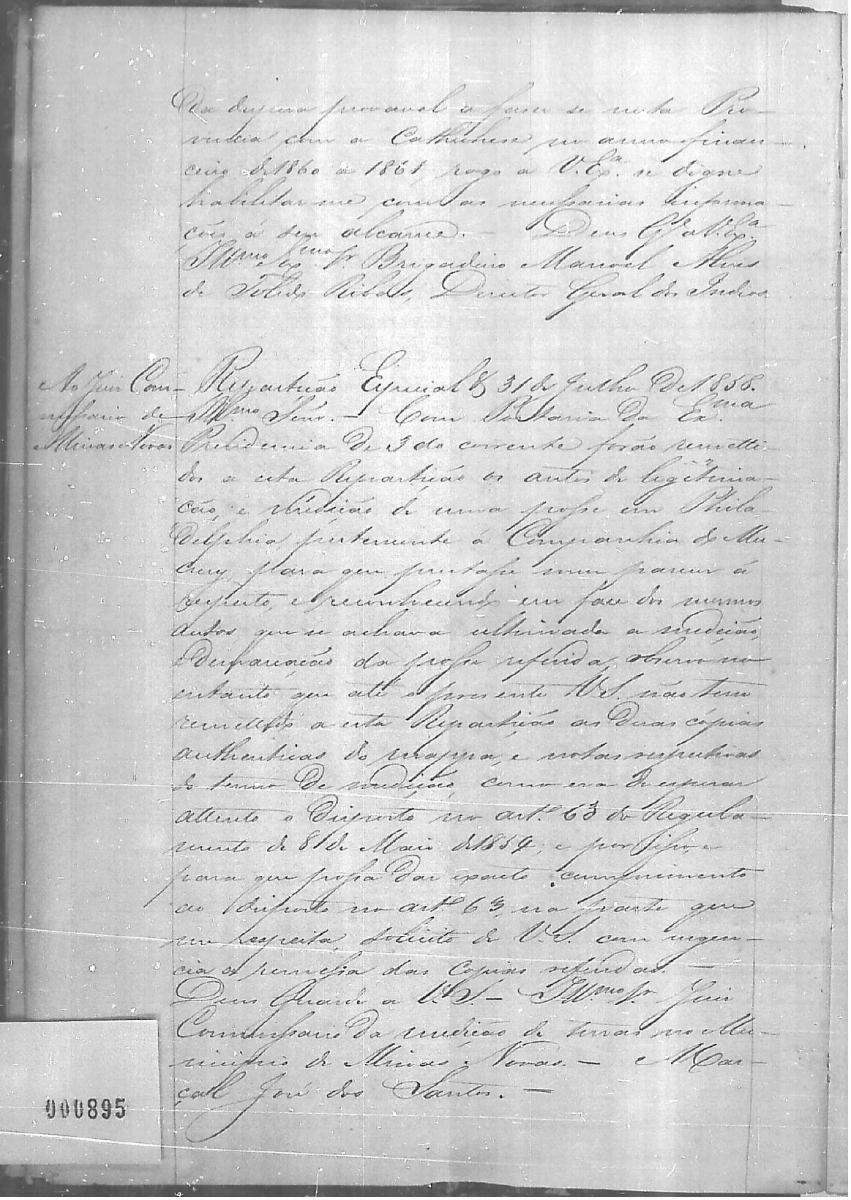 da despesa provavel a faser se nesta Pro-
vincia com a Cathechese no anno finan-
ceiro de 1860 a 1861, rogo a V. Exª. se digne
habilitar-me com as necessarias informa-
ções a seu alcance. — Deus Gᵉ a V. Exª
Illmo Exmo Sr. Brigadeiro Manoel Alves
de Toledo Ribas, Director Geral dos Indios
Ao Juiz Com-
missario de
Minas Novas
Repartição Especial & 31 de Julho de 1858.
Illmo Senr. — Com Portaria da Exma
Presidencia de 3 do corrente forão remetti-
dos a esta Repartição os autos de legitima-
ção, e medição de uma posse em Phila-
delphia, pertencente á Companhia do Mu-
cury, para que prestasse meu parecer á
respeito, e reconhecendo em face dos mesmos
autos que se achava ultimada a medição,
e demarcação da posse referida, observo no
entanto que até o presente V. S. não tem
remettido a esta Repartição as duas cópias
authenticas do mappa, e notas respectivas
do termo de medição, como era de esperar
attento o disposto no artº. 63 do Regula-
mento de 8 de Maio de 1854, e por isso, e
para que possa dar exacto cumprimento
ao disposto no artº 63, na parte que
me respeita, solicito de V. S. com urgen-
cia a remessa das copias referidas. —
Deus Guarde a V. S — Illmo Sr. Juiz
Commissario da medição de terras no Mu-
nicipio de Minas Novas. — Mar-
çal José dos Santos. —
000895